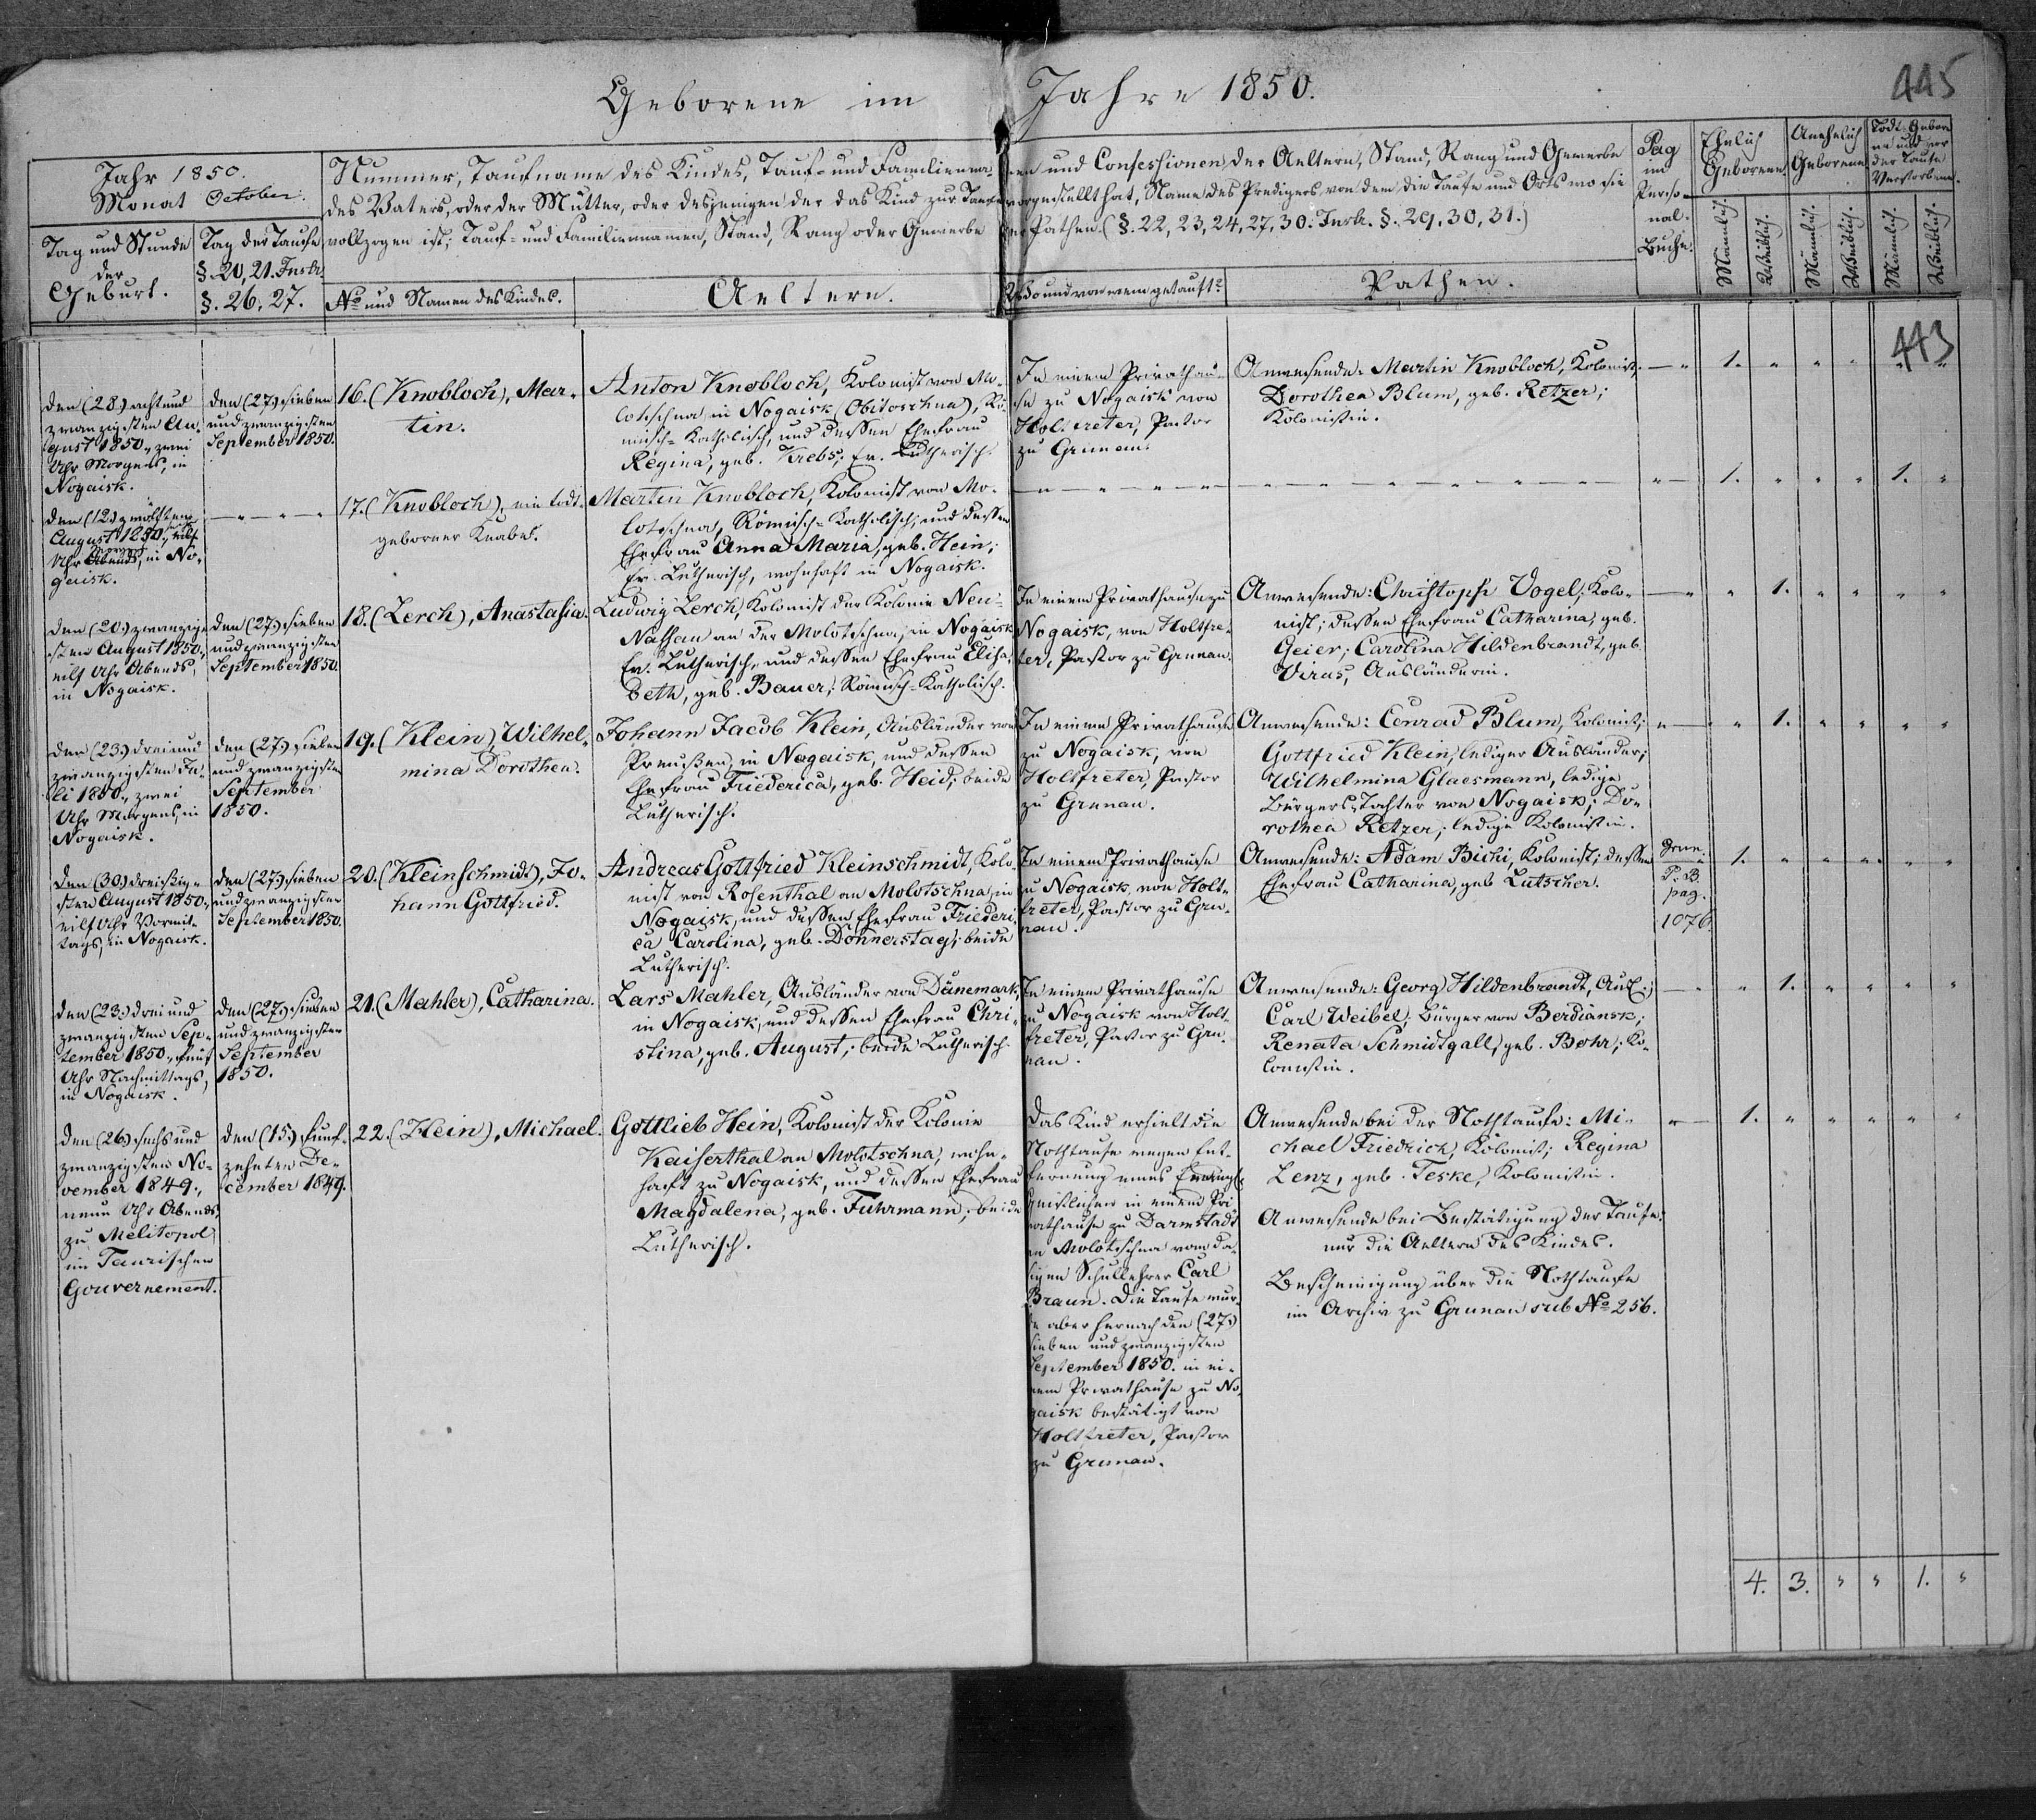 445
Geborene im Jahre 1850.
Jahr 1850.
Monat October.
Tag und Stunde
der
Geburt.
Tag der Taufe
§. 20, 21. Instr.
§. 26, 27.
Nummer, Taufname des Kindes, Tauf- und Familienna-men und Confessionen der Aeltern, Stand, Rang und Gewerbe
des Vaters, oder der Mutter, oder desjenigen der das Kind zur Taufe vorgestellt hat, Name des Predigers von dem die Taufe und Orts wo sie
vollzogen ist; Tauf- und Familiennamen, Stand, Rang oder Gewerbe der Pathen (§. 22, 23, 24, 27, 30. Instr. §. 29, 30, 31.)
No und Namen des Kindes.
Aeltern.
Wo und von wem getauft?
Pathen.
Pag
im
Perso-
nal-
Buche.
Ehelich
Geborene.
Unehelich
Geborene.
Todt-Gebore-
ne und vor
der Taufe
Verstorbene.
Männlich.
Weiblich.
Männlich.
Weiblich.
Männlich.
Weiblich.
443
den (28.) acht und
zwanzigsten Au-
gust 1850., zwei
Uhr Morgens, in
Nogaisk.
den (27.) sieben
und zwanzigsten
September 1850.
16. (Knobloch), Mar-
tin.
Anton Knobloch, Kolonist von Mo-
lotschna in Nogaisk (Obitoschna), Rö-
misch-Katholisch, und dessen Ehefrau
Regina, geb. Krebs; Ev. Lutherisch.
In einem Privathau-
se zu Nogaisk von
Holtfreter, Pastor
zu Grunau.
Anwesende: Martin Knobloch, Kolonist;
Dorothea Blum, geb. Retzer;
Kolonistin.
— " 1. " " " " "
den (12.) zwölften
August 1850., eilf
Uhr Abends, in No-
gaisk.
— " — " — "
17. (Knobloch), ein todt-
geborner Knabe.
Martin Knobloch, Kolonist von Mo-
lotschna, Römisch-Katholisch; und dessen
Ehefrau Anna Maria, geb. Hein;
Ev. Lutherisch, wohnhaft in Nogaisk.
— " — " — " — " —
" — 1. " " " 1. "
den (20.) zwanzig-
sten August 1850.,
eilf Uhr Abends,
in Nogaisk.
den (27.) sieben
und zwanzigsten
September 1850.
18. (Lerch), Anastasia.
Ludwig Lerch, Kolonist der Kolonie Neu-
Nassau an der Molotschna, in Nogaisk,
Ev. Lutherisch, und dessen Ehefrau Elisa-
beth, geb. Bauer; Römisch-Katholisch.
In einem Privathause zu
Nogaisk, von Holtfre-
ter, Pastor zu Grunau.
Anwesende: Christoph Vogel; Kolo-
nist; dessen Ehefrau Catharina, geb.
Geier; Carolina Hildenbrandt, geb.
Virus, Ausländerin.
— " " 1. " " " "
den (23.) drei und
zwanzigsten Ju-
li 1850., zwei
Uhr Morgens, in
Nogaisk.
den (27.) sieben
und zwanzigsten
September
1850.
19. (Klein), Wilhel-
mina Dorothea.
Johann Jacob Klein, Ausländer von
Preußen, in Nogaisk, und dessen
Ehefrau Friederica, geb. Heid; beide
Lutherisch.
In einem Privathause
zu Nogaisk, von
Holtfreter, Pastor
zu Grunau.
Anwesende: Conrad Blum, Kolonist;
Gottfried Klein, lediger Ausländer;
Wilhelmina Glaesmann, ledige
Bürgers-Tochter von Nogaisk; Do-
rothea Retzer, ledige Kolonistin.
" — " 1. " " " "
den (30.) dreißig-
sten August 1850.,
eilf Uhr Vormit-
tags, in Nogaisk.
den (27.) sieben
und zwanzigsten
September 1850.
20. (Kleinschmidt), Jo-
hann Gottfried.
Andreas Gottfried Kleinschmidt, Kolo-
nist von Rosenthal an Molotschna, in
Nogaisk, und dessen Ehefrau Friederi-
ca Carolina, geb. Donnerstag; beide
Lutherisch.
In einem Privathause
zu Nogaisk, von Holt-
freter, Pastor zu Gru-
nau.
Anwesende: Adam Bichi, Kolonist; dessen
Ehefrau Catharina, geb. Lutscher.
P. B.
pag.
1076.
1. " " " " "
den (23.) drei und
zwanzigsten Sep-
tember 1850., fünf
Uhr Nachmittags,
in Nogaisk.
den (27.) sieben
und zwanzigsten
September
1850.
21. (Mahler), Catharina.
Lars Mahler, Ausländer von Dänemark,
in Nogaisk, und dessen Ehefrau Chri-
stina, geb. August; beide Lutherisch.
In einem Privathause
zu Nogaisk von Holt-
freter, Pastor zu Gru-
nau.
Anwesende: Georg Hildenbrandt, Ausl.;
Carl Weibel, Bürger von Berdiansk;
Renata Schmidtgall, geb. Bohr; Ko-
lonistin.
— " " 1. " " " "
den (26.) sechs und
zwanzigsten No-
vember 1849.,
neun Uhr Abends,
zu Melitopol
im Taurischen
Gouvernement.
den (15.) fünf-
zehnten De-
cember 1849.
22. (Hein), Michael.
Gottlieb Hein, Kolonist der Kolonie
Kaiserthal an Molotschna, wohn-
haft zu Nogaisk, und dessen Ehefrau
Magdalena, geb. Fuhrmann; beide
Lutherisch.
Das Kind erhielt die
Nothtaufe wegen Ent-
fernung eines Evangl.
Geistlichen in einem Pri-
vathause zu Darmstadt
an Molotschna vom da-
sigen Schullehrer Carl
Braun. Die Taufe wur-
de aber hernach den (27.)
sieben und zwanzigsten
September 1850. in ei-
nem Privathause zu No-
gaisk bestätigt von
Holtfreter, Pastor
zu Grunau.
Anwesende bei der Nothtaufe: Mi-
chael Friedrich, Kolonist; Regina
Lenz, geb. Teske, Kolonistin.
Anwesende bei Bestätigung der Taufe:
nur die Aeltern des Kindes.
Bescheinigung über die Nothtaufe
im Archiv zu Grunau sub No 256.
" — 1. " " " " "
4. 3. " " 1. "